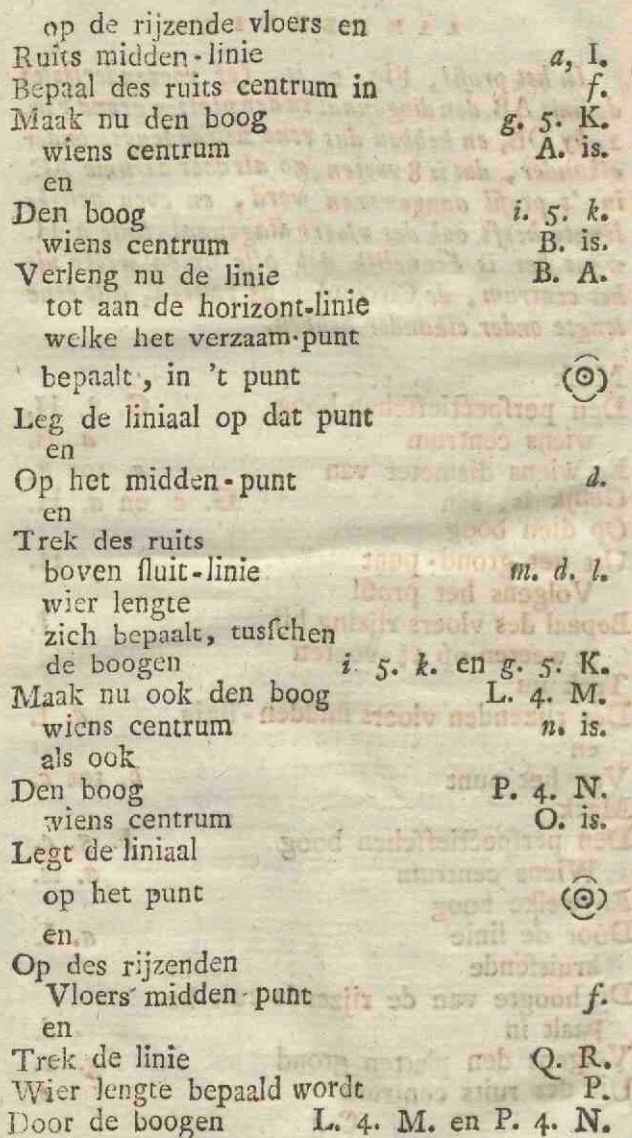 op de rijzende vloers en
Ruits midden-linie a, I.
Bepaal des ruits centrum in f.
Maak nu den boog g. 5. K.
wiens centrum A. is.
en
Den boog i. 5. k.
wiens centrum B. is.
Verleng nu de linie B. A.
tot aan de horizont-linie
welke het verzaam-punt
bepaalt, in 't punt (⊙)
Leg de liniaal op dat punt
en
Op het midden-punt d.
en
Trek des ruits
boven sluit-linie m. d. l.
wier lengte
zich bepaalt, tusſchen
de boogen i. 5. k. en g. 5. K.
Maak nu ook den boog L. 4. M.
wiens centrum n. is.
als ook
Den boog P. 4. N.
wiens centrum O. is.
Legt de liniaal
op het punt (⊙)
en
Op des rijzenden
Vloers midden-punt f.
en
Trek de linie Q. R.
Wier lengte bepaald wordt P.
Door de boogen L. 4. M. en P. 4. N.